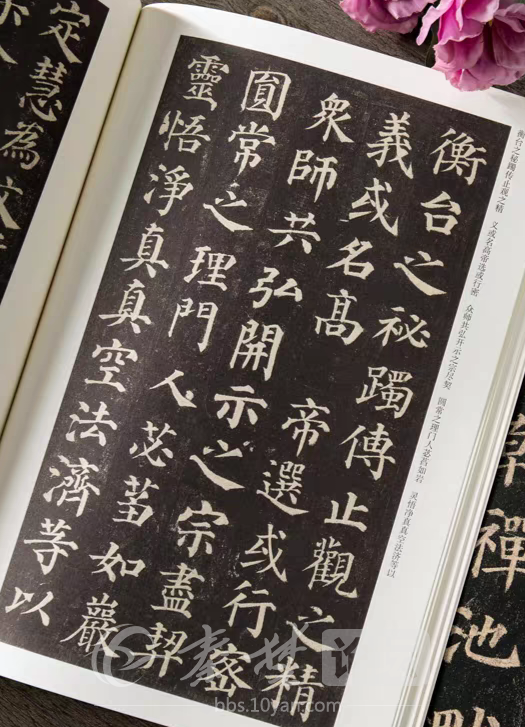 衡台之祕躅傳止觀之精
義或名高 帝選或行密
眾師共弘開示之宗盡契
圓常之理門人苾蒭如巖
靈悟淨真真空法濟等以
衡台之秘躅传止观之精 义或名高帝选或行密 众师共弘开示之宗尽契 圆常之理门人苾蒭如岩 灵悟净真真空法济等以
定慧為
禪池
bbs.10yan.com